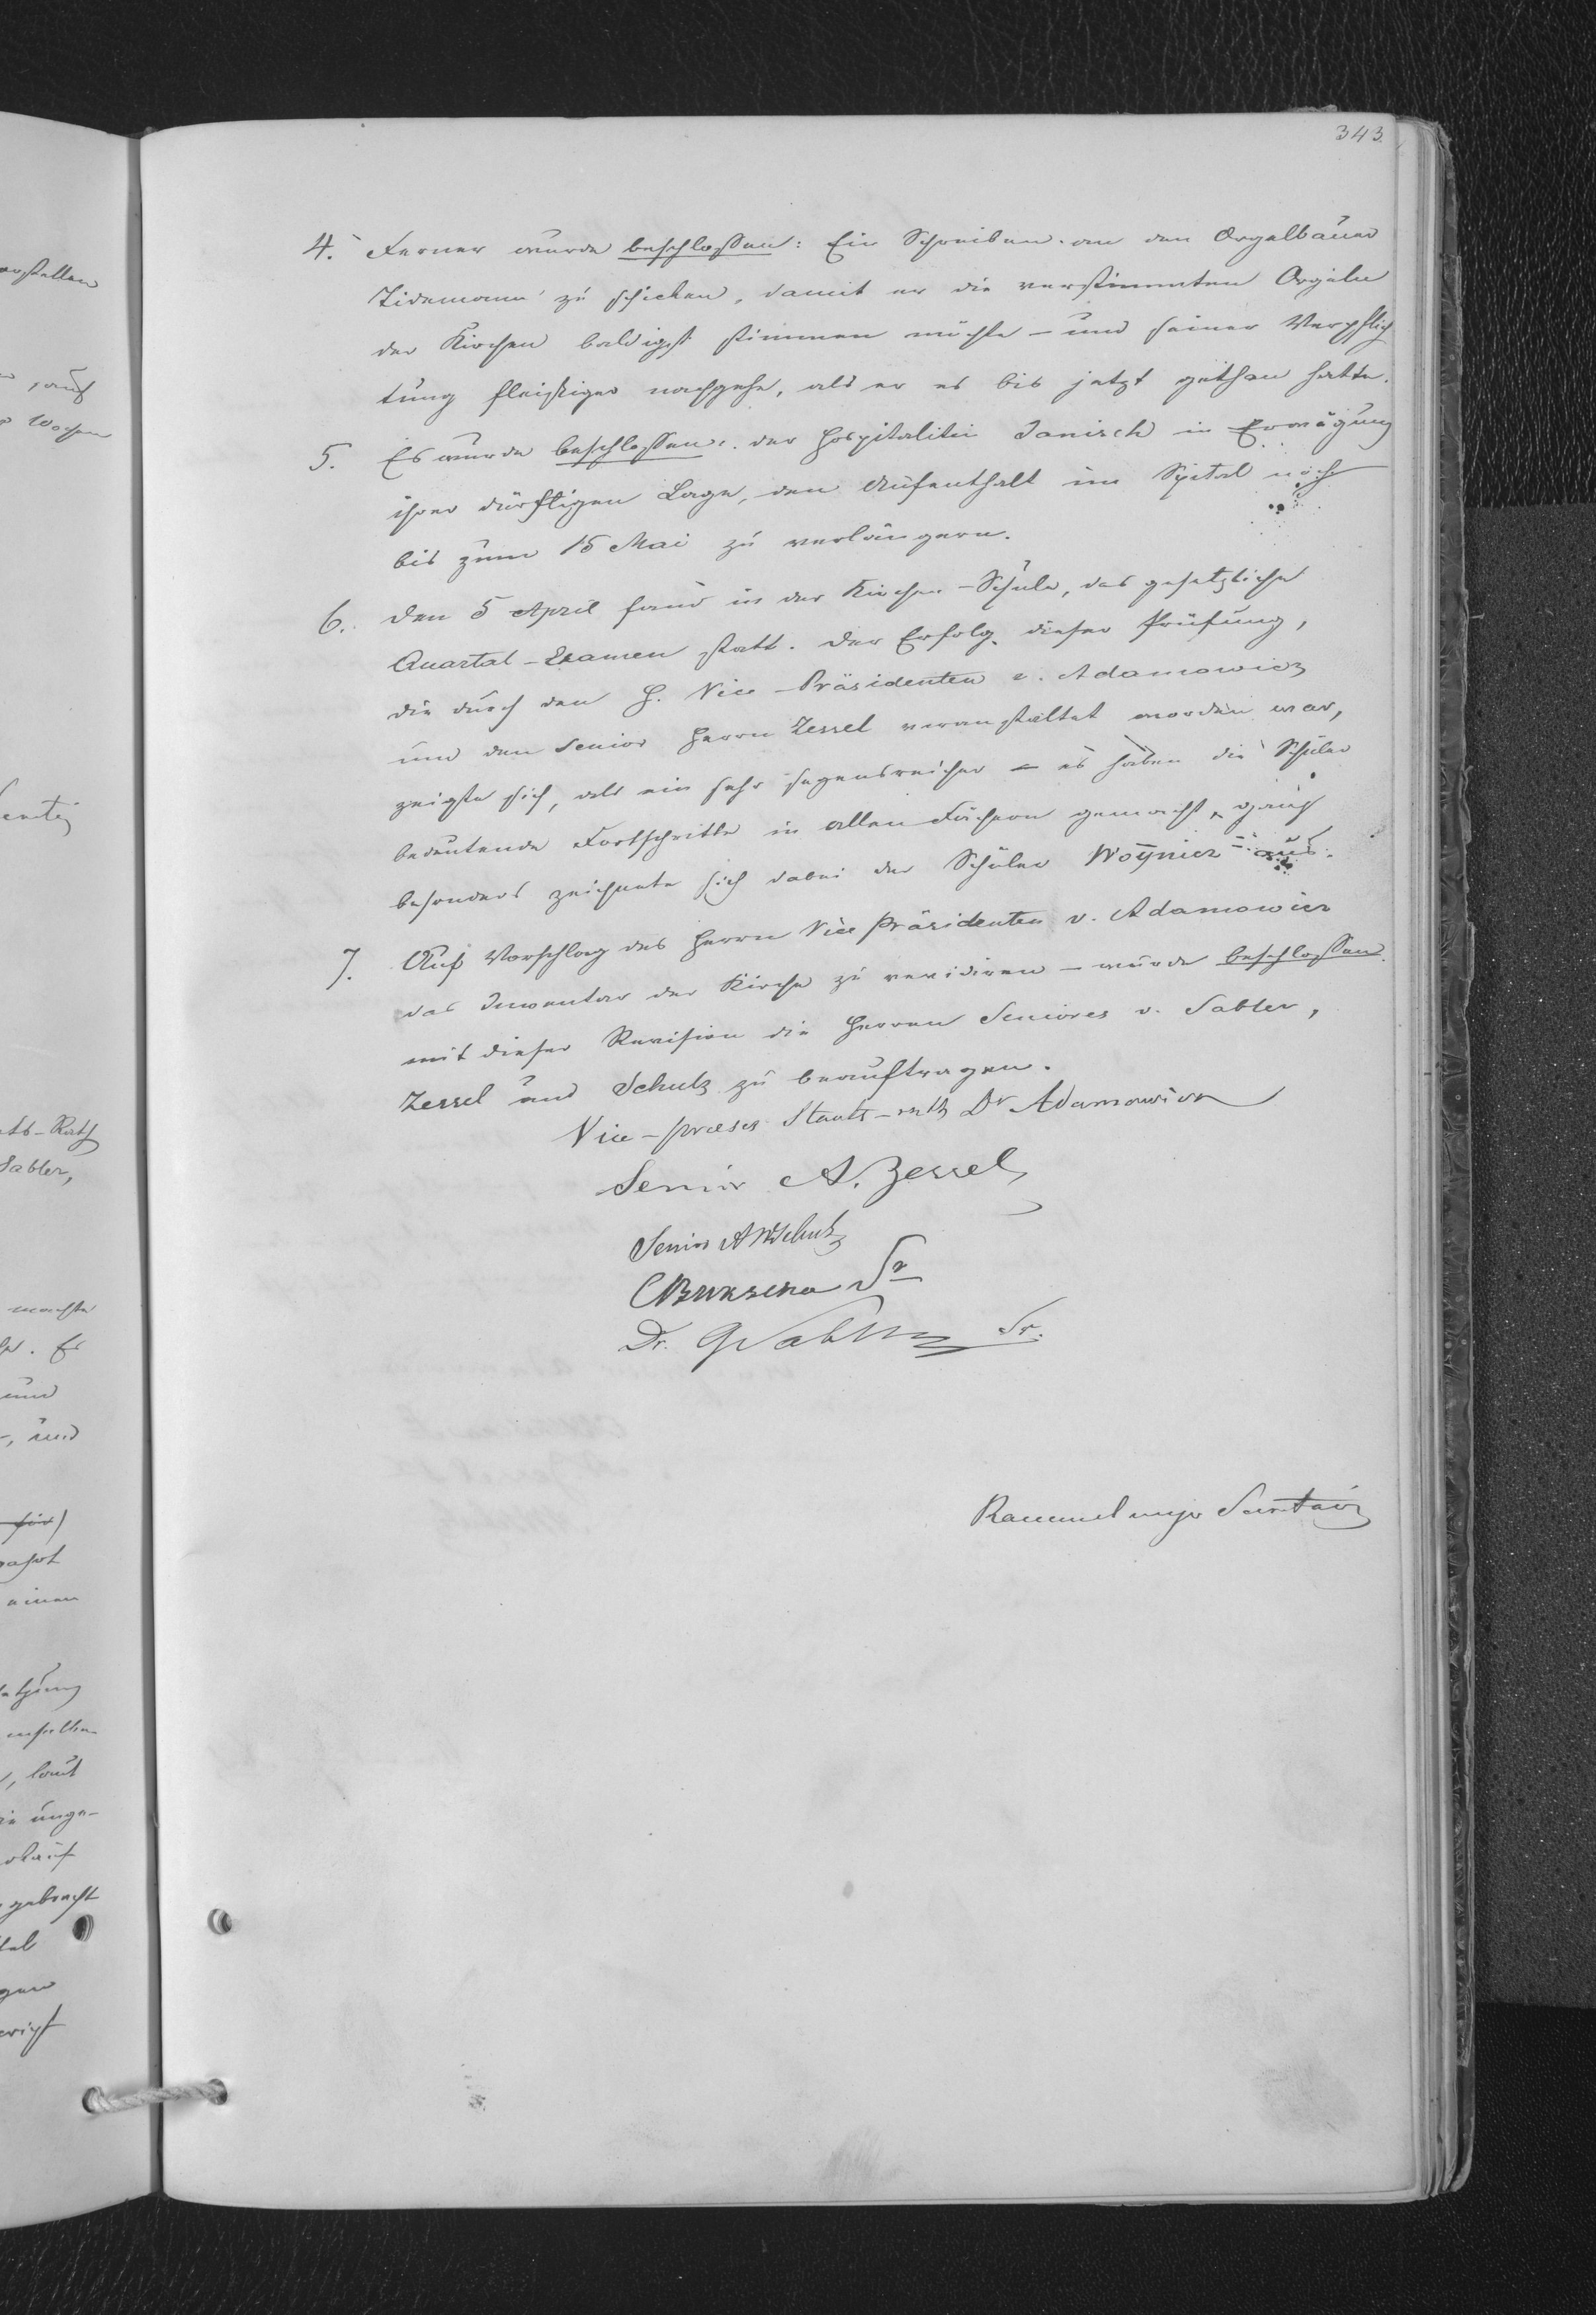 343.
4. Ferner wurde beschloßen: Ein Schreiben an den Orgelbauer
Tidemann zu schicken, damit er die verstimmten Orgeln
der Kirchen baldigst stimmen möchte – und seiner Verpflich
tung fleißiger nachgehe, als er es bis jetzt gethan hatte.
5. Es wurde beschloßen: der Hospitalitin Janisch in Erwägung
ihrer dürftigen Lage, den Aufenthalt im Spital noch
bis zum 15 Mai zu verlängern.
6. Den 5 April fand in der Kirchen-Schule, das gesetzliche
Quartal-Examen statt. Der Erfolg dieser Prüfung,
die durch den H. Vice-Präsidenten v. Adamowicz
und den Senior Herrn Zessel veranstaltet worden war,
zeigte sich, als ein sehr segensreicher – es haben die Schüler
bedeutende Fortschritte in allen Fächern gemacht, ganz
besonders zeichnete sich dabei der Schüler Woynicz aus.
7. Auf Vorschlag des Herrn Vice Präsidenten v. Adamowicz
das Inventar der Kirche zu revidiren – wurde beschloßen
mit dieser Revision die Herren Seniores v. Sabler,
Zessel und Schulz zu beauftragen.
Vice-praeses Staats-rath Dr Adamowicz
Senior A. Zessel
Senior A Schulz
Sr
Dr. G Sabler Sr.
Rammelmeyer Secretair
erstellen
auch
Wochen
ats-Rath
Sabler,
machte
Er
und
, und
für)
einen
, laut
unge-
gebracht